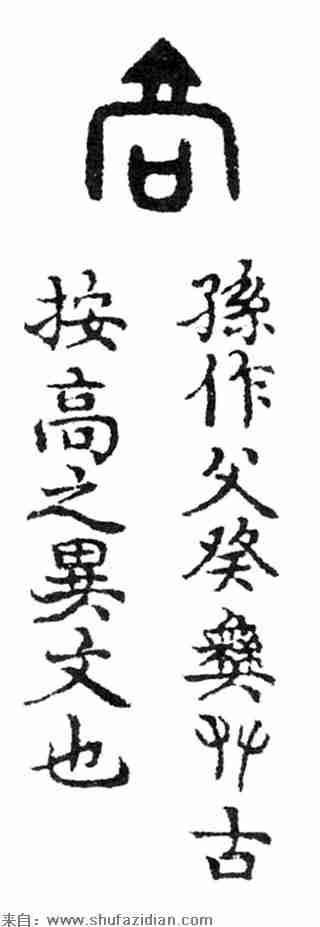 高
孫作父癸彝古
按高之異文也
来自：www.shufazidian.com